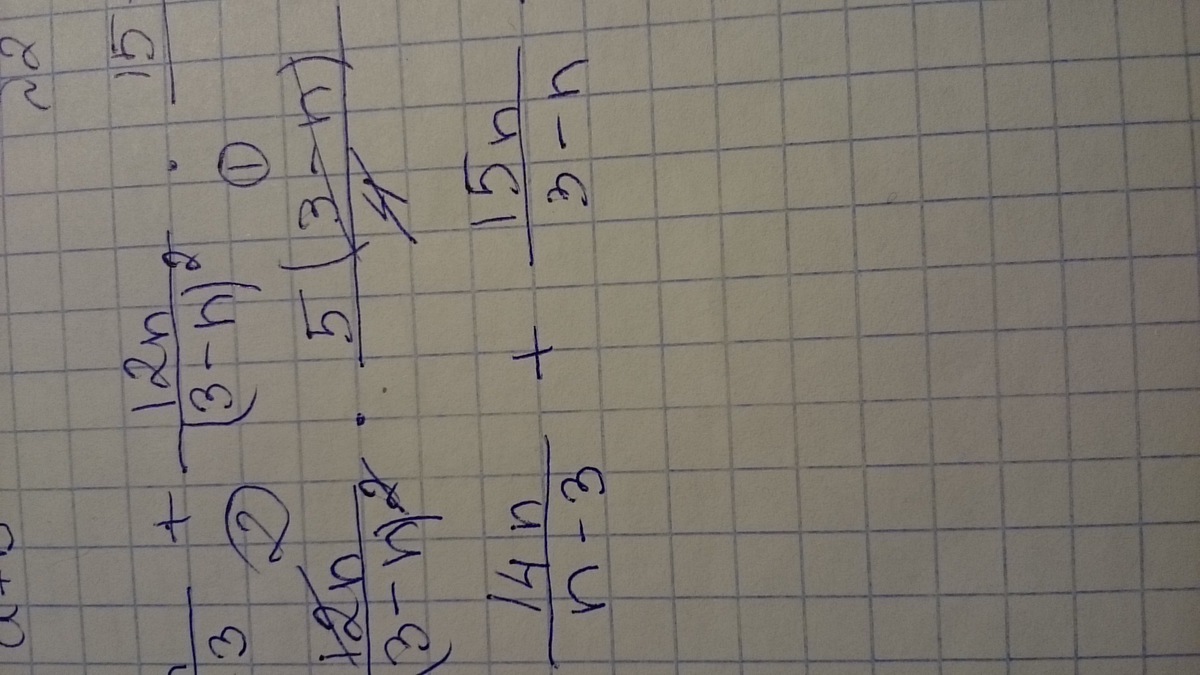 3 + 12n/(3-n)² · 15
② ①
12n/(3-n)² · 5(3-n)/4
14n/(n-3) + 15n/(3-n)